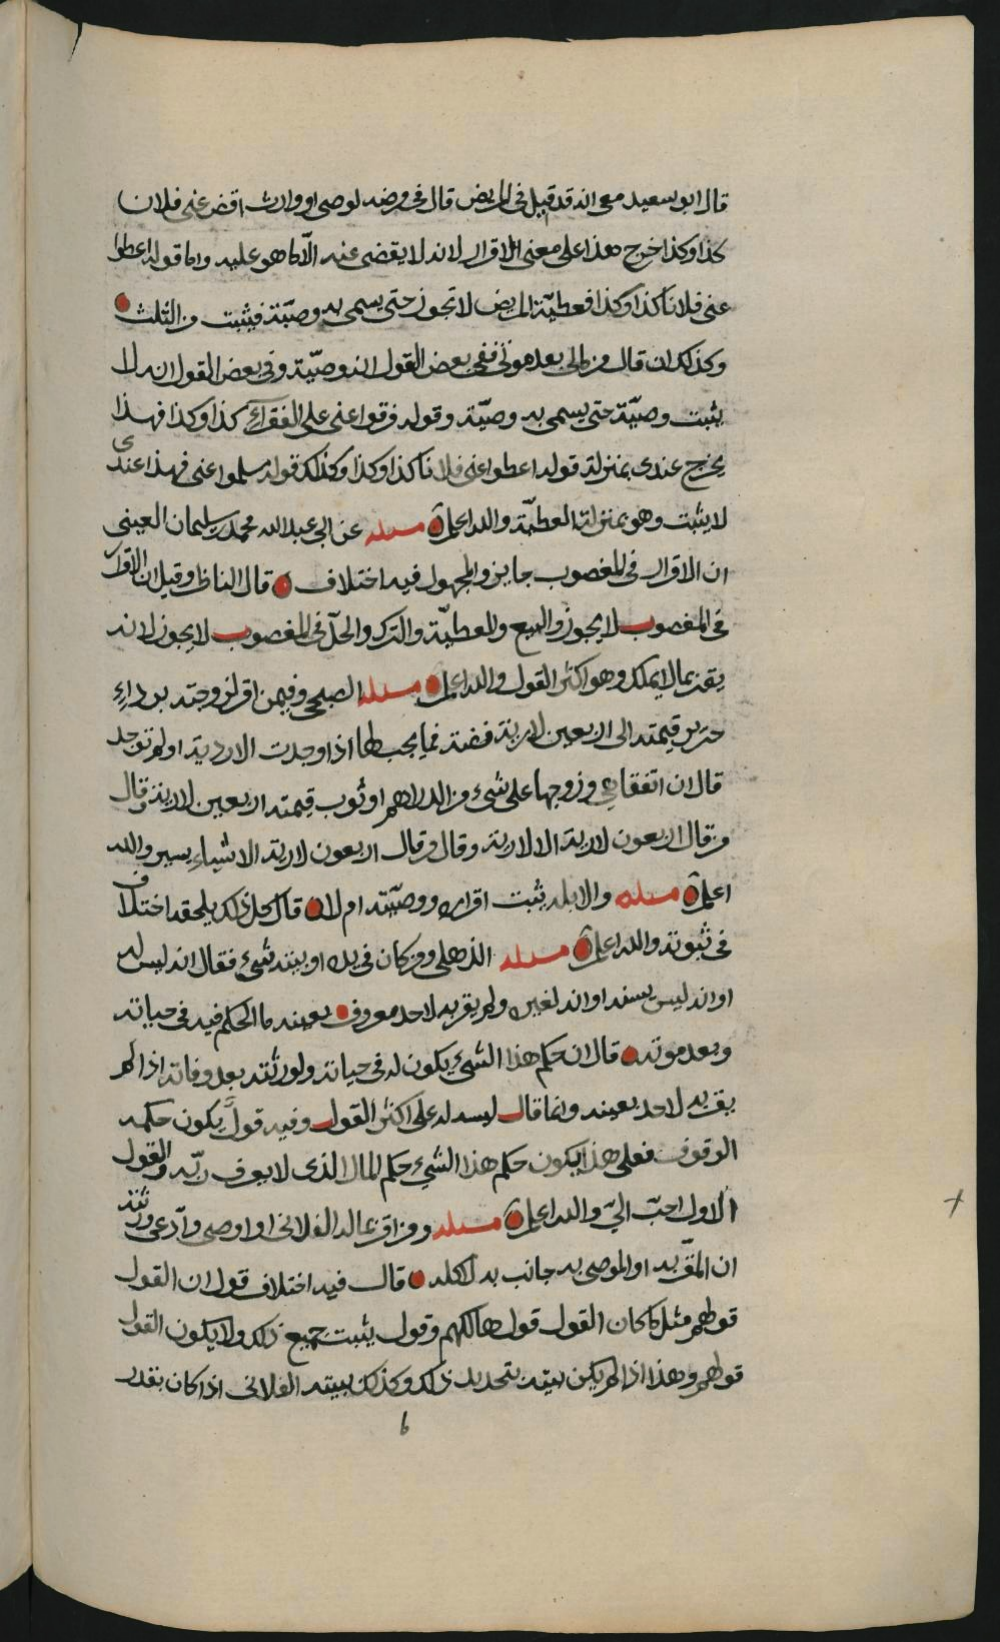 قال ابو سعيد معي انه قد قيل في المريض قال في مرضه لوصي او وارث اقض عني فلان
كذا وكذا خرج هذا على معنى الاقرار لانه لا يقضى عنه الا ما هو عليه واما قوله اعطوا
عني فلانا كذا وكذا فعطية المريض لا تجوز حتى يسمي به وصيّة فيثبت من الثلث
وكذلك ان قال من مالي بعد موتي ففي بعض القول انه وصيّة وفي بعض القول انه لا
يثبت وصيّة حتى يسمي به وصيّة وقوله فرقوا عني على الفقرآء كذا وكذا فهذا
يخرج عندي بمنزلة قوله اعطوا عني فلانا كذا وكذا وكذلك قوله سلموا عني فهذا عندي
لا يثبت وهو بمنزلة العطيّة والله اعلم مسئله عن ابي عبدالله محمد بن سليمان العيني
ان الاقرار في المغصوب جايز والمجهول فيه اختلاف قال الناظر وقيل ان الاقرار
في المغصوب لا يجوز والبيع والعطيّة والترك والحلّ في المغصوب لا يجوز لانه
يقر بما لا يملك وهو اكثر القول والله اعلم مسئله الصبحي وفيمن اقر لزوجته برداء
حرير قيمته الى اربعين لارية فضة فما يجب لها اذا وجدت الاردية او لم توجد
قال ان اتفقا هي وزوجها على شيء من الدراهم او ثوب قيمته اربعين لارية وقال
من قال اربعون لارية الا لارية وقال من قال اربعون لارية الا شياء يسير والله
اعلم مسئله والابله يثبت اقراره ووصيّته ام لا قال كل ذلك يلحقه اختلاف
في ثبوته والله اعلم مسئله الذهلي ومن كان في يده او بيته شيء فقال انه ليس له
او انه ليس بسنه او انه لغيره ولم يقر به لاحد معروف بعينه ما الحكم فيه في حياته
وبعد موته قال ان حكم هذا الشيء يكون له في حياته ولورثته بعد وفاته اذا لم
يقر به لاحد بعينه وانما قال ليس له على اكثر القول وفيه قول يكون حكمه
الوقوف فعلى هذا يكون حكم هذا الشيء حكم المال الذي لا يعرف ربّه والقول
الاول احبّ اليّ والله اعلم مسئله ومن اقر بماله الفلاني او اوصى وادّعى ورثته
ان المقر به او الموصى به جانب به لا كله قال فيه اختلاف قول ان القول
قولهم مثل ما كان القول قول هالكهم وقول يثبت جميع ذلك ولا يكون القول
قولهم وهذا اذا لم يكن بيّنة بتحديد ذلك وكذلك بيته الفلاني اذا كان بقدر